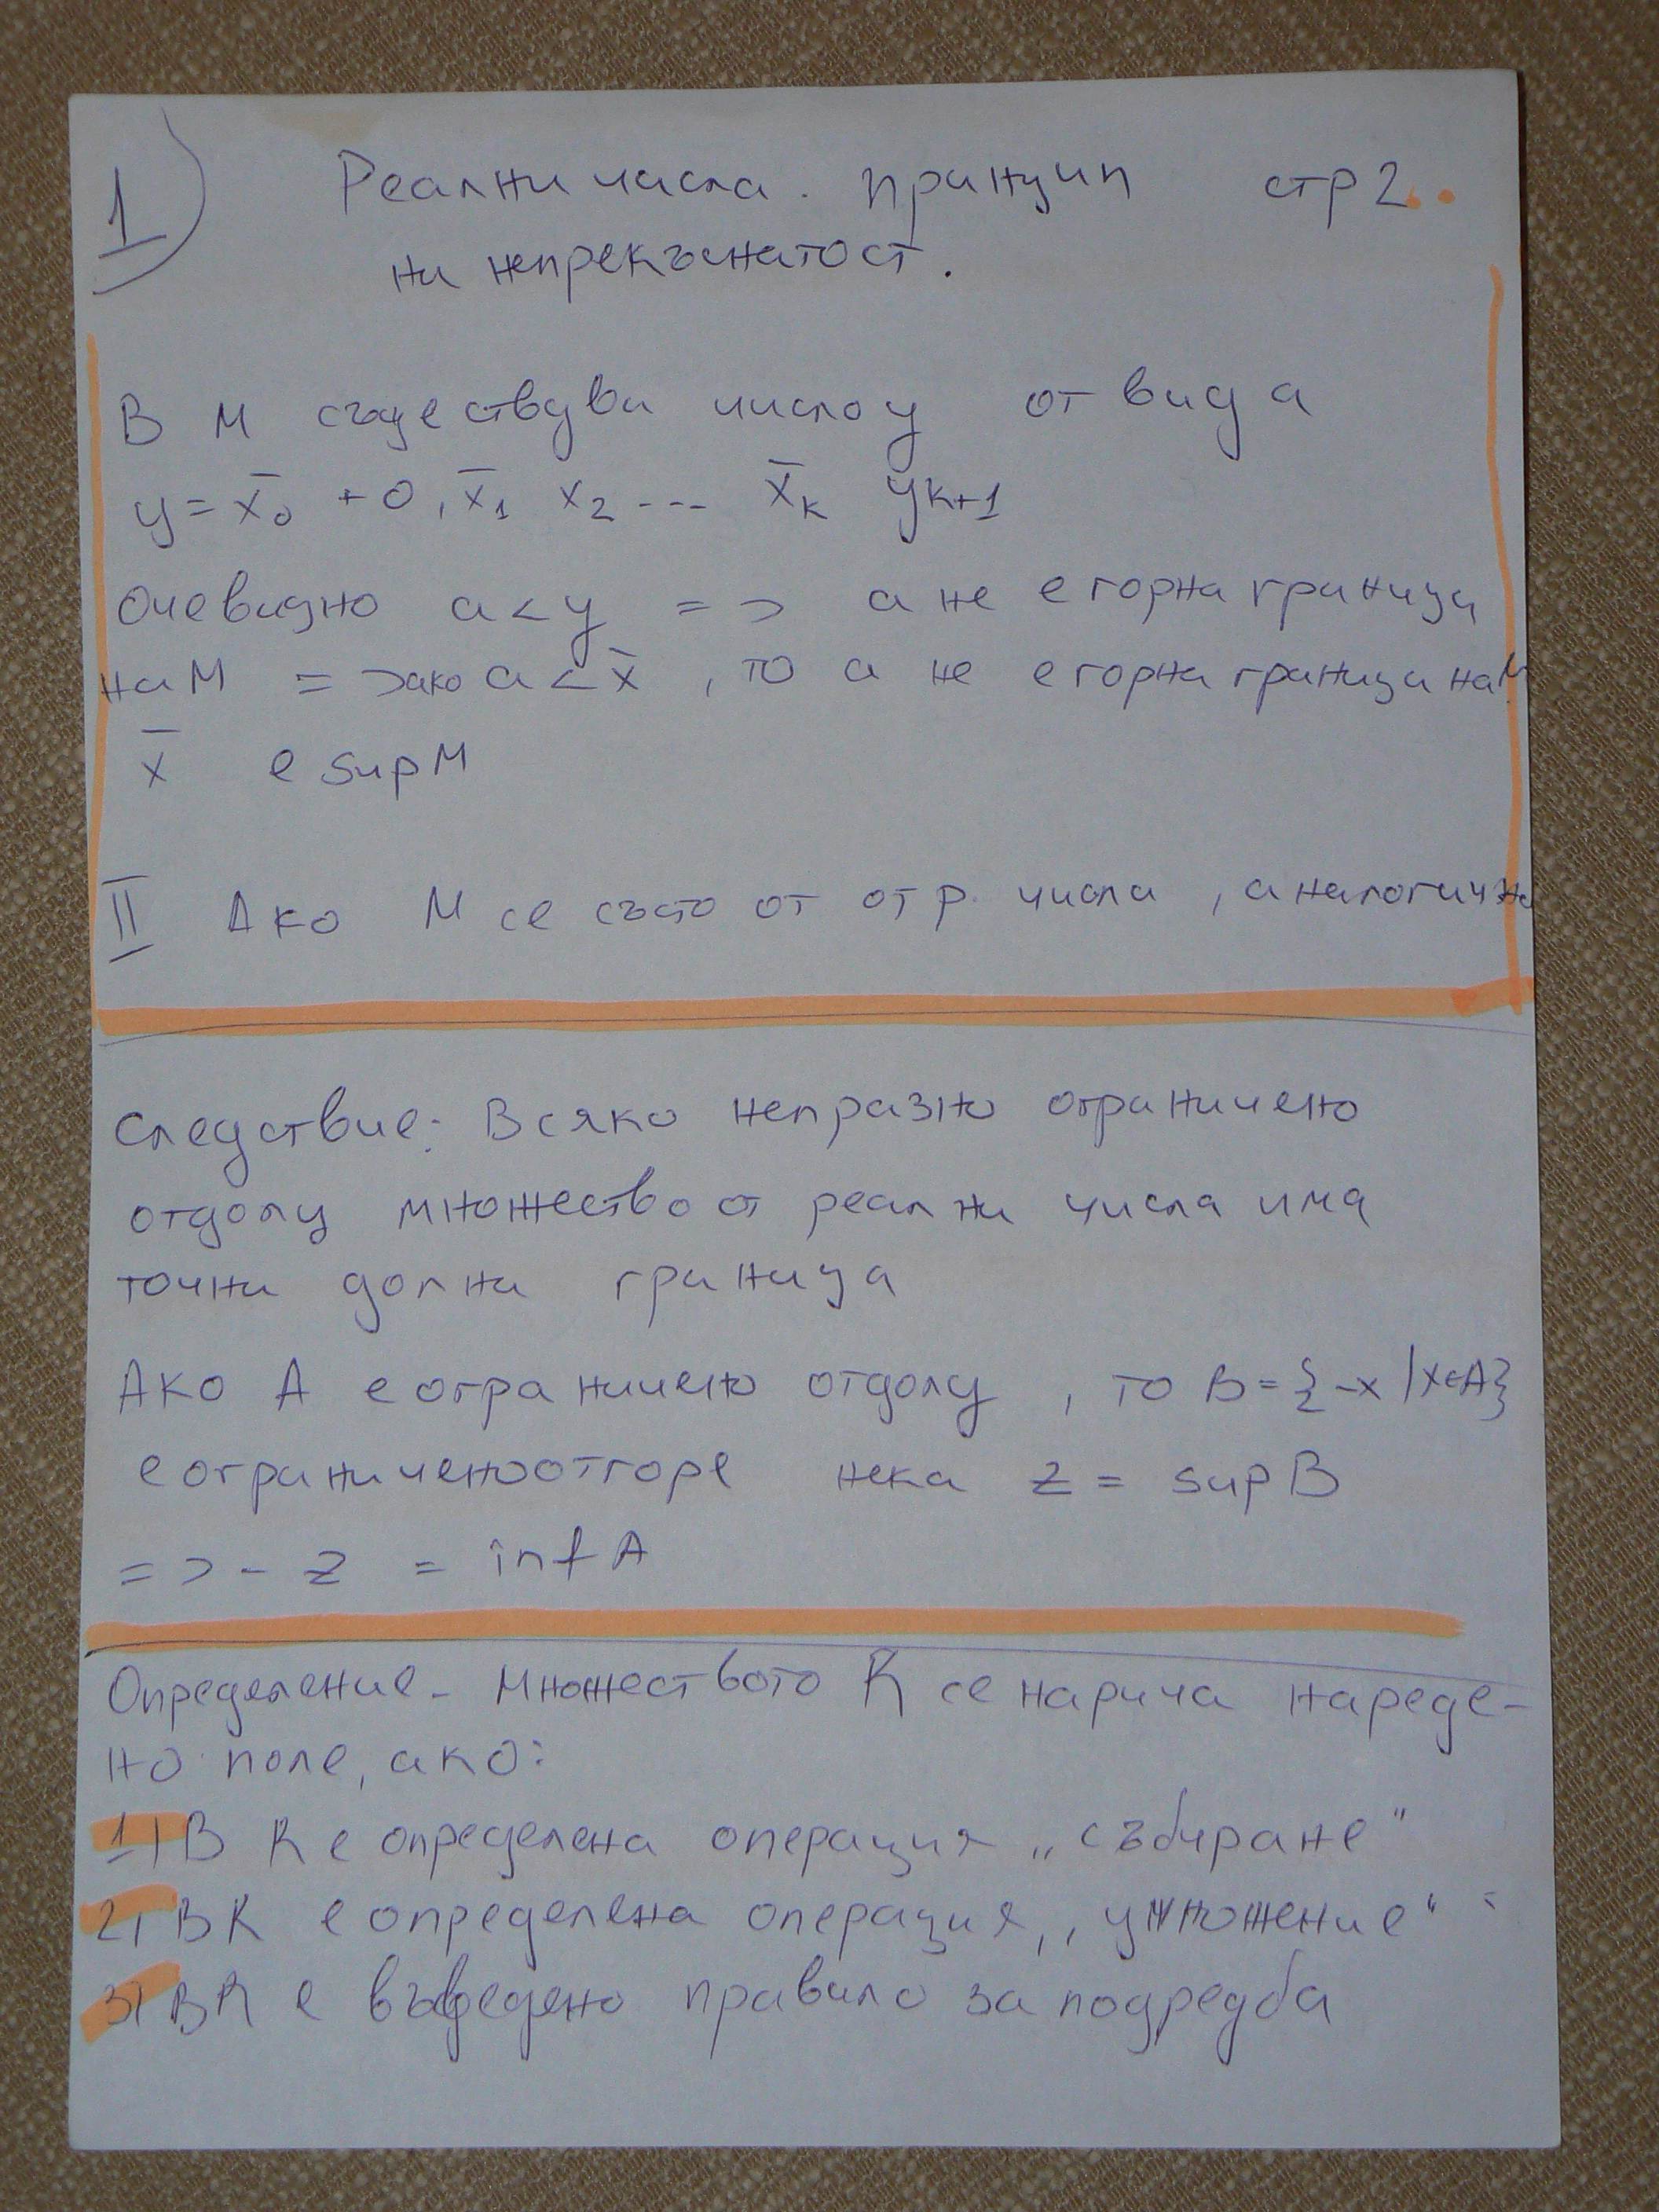 1) Реални числа. Принцип стр 2..
на непрекъснатост.
В М съществува число y от вида
y = x̄₀ + 0, x̄₁ x₂ --- x̄ₖ yₖ₊₁
Очевидно a < y => а не е горна граница
на М => ако a < x̄ , то а не е горна граница на М
x̄ е sup M
II Ако М се състо от отр. числа , аналогично
Следствие: Всяко непразно ограничено
отдолу множество от реални числа има
точна долна граница
Ако А е ограничено отдолу , то B = {-x | x∈A}
е ограничено отгоре нека z = sup B
=> - z = inf A
Определение - Множеството R се нарича нареде-
но поле, ако:
1) В R е определена операция „събиране"
2) В R е определена операция „умножение"
3) В R е въведено правило за подредба